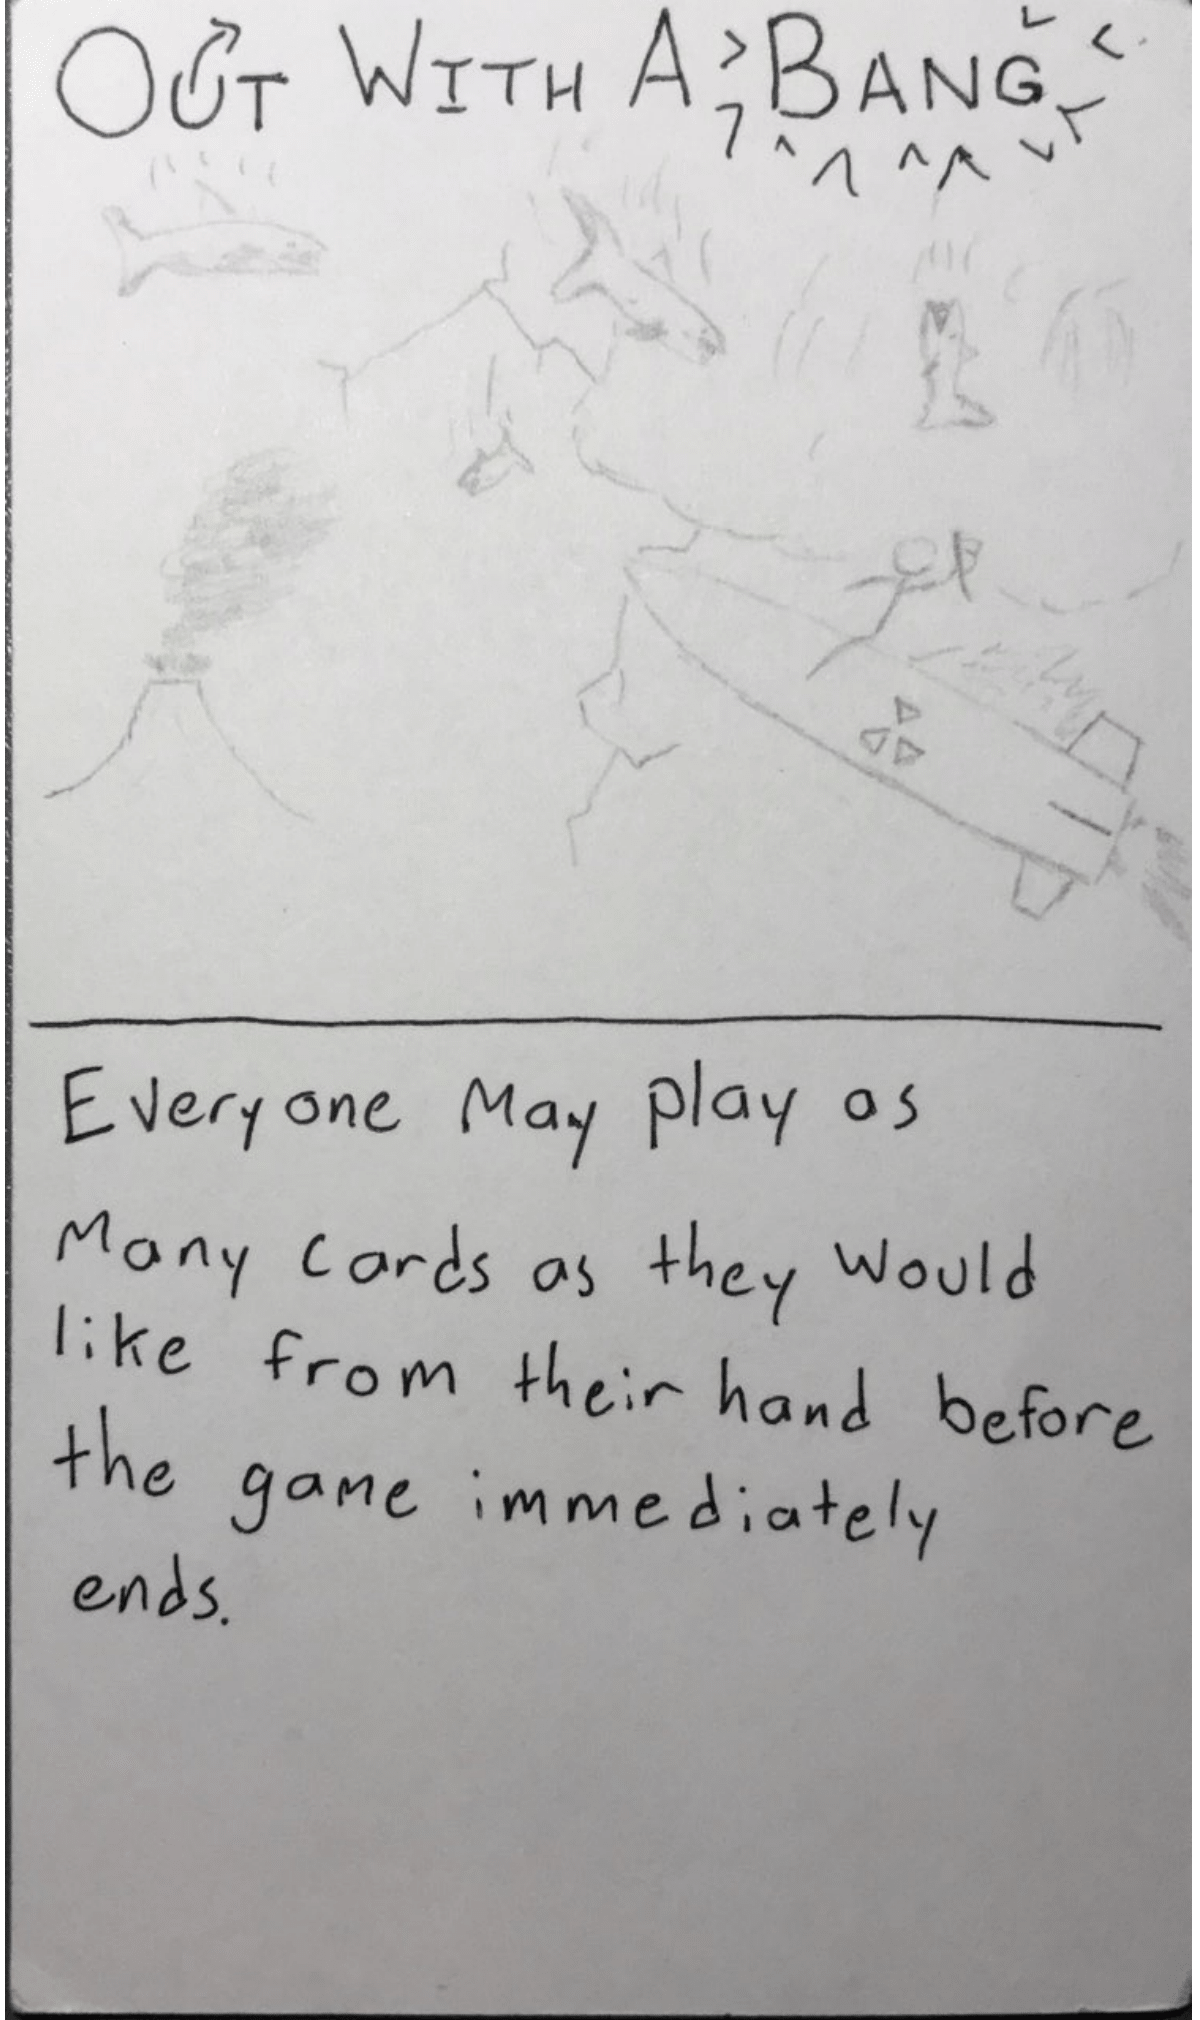 OUT WITH A BANG
Everyone May play as
Many cards as they Would
like from their hand before
the game immediately
ends.